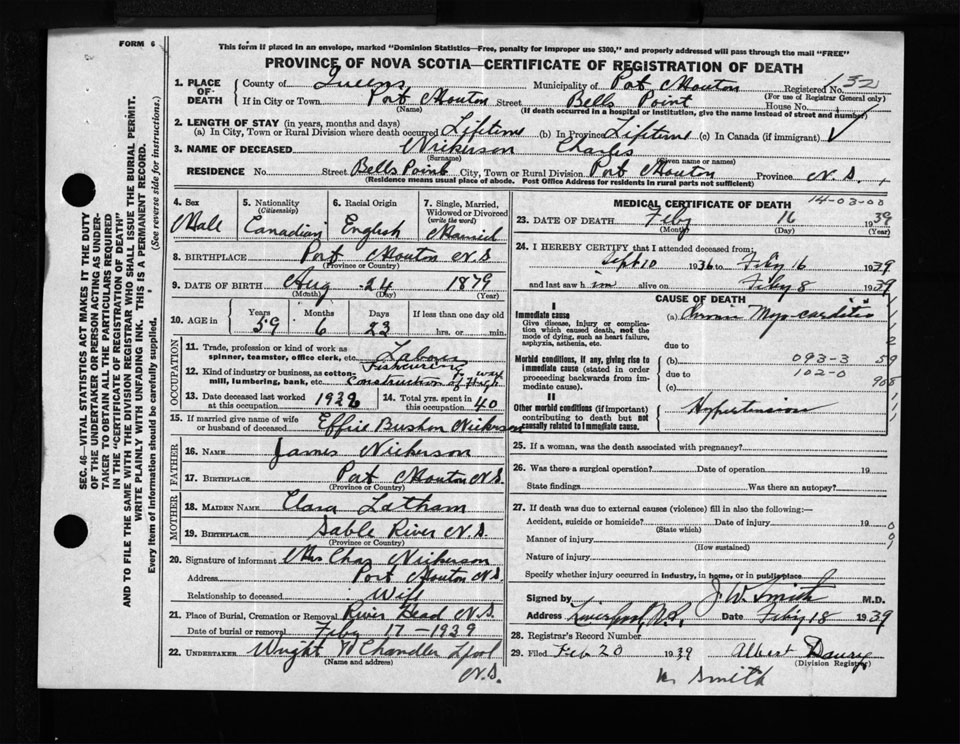 FORM 6
This form if placed in an envelope, marked "Dominion Statistics—Free, penalty for improper use $300," and properly addressed will pass through the mail "FREE"
PROVINCE OF NOVA SCOTIA—CERTIFICATE OF REGISTRATION OF DEATH
SEC. 46—VITAL STATISTICS ACT MAKES IT THE DUTY
OF THE UNDERTAKER OR PERSON ACTING AS UNDER-
TAKER TO OBTAIN ALL THE PARTICULARS REQUIRED
IN THE "CERTIFICATE OF REGISTRATION OF DEATH"
AND TO FILE THE SAME WITH THE DIVISION REGISTRAR WHO SHALL ISSUE THE BURIAL PERMIT.
WRITE PLAINLY WITH UNFADING INK. THIS IS A PERMANENT RECORD.
Every item of information should be carefully supplied. (See reverse side for instructions.)
1. PLACE OF DEATH County of Queens Municipality of Port Mouton Registered No. 132
(For use of Registrar General only)
If in City or Town Port Mouton Street Bells Point House No.
(Name) (If death occurred in a hospital or institution, give the name instead of street and number)
2. LENGTH OF STAY (in years, months and days)
(a) In City, Town or Rural Division where death occurred Lifetime (b) In Province Lifetime (c) In Canada (if immigrant)
3. NAME OF DECEASED Nickerson Charles
(Surname) (Given name or names)
RESIDENCE No. Street Bells Point City, Town or Rural Division Port Mouton Province N.S.
(Residence means usual place of abode. Post Office Address for residents in rural parts not sufficient)
4. Sex Male
5. Nationality (Citizenship) Canadian
6. Racial Origin English
7. Single, Married, Widowed or Divorced (write the word) Married
8. BIRTHPLACE Port Mouton N.S.
(Province or Country)
9. DATE OF BIRTH Aug 24 1879
(Month) (Day) (Year)
10. AGE in Years 59 Months 6 Days 23 If less than one day old hrs. or min.
OCCUPATION
11. Trade, profession or kind of work as spinner, teamster, office clerk, etc. Laborer
Fishering
12. Kind of industry or business, as cotton-mill, lumbering, bank, etc. Construction of High way
13. Date deceased last worked at this occupation 1938
14. Total yrs. spent in this occupation 40
15. If married give name of wife or husband of deceased Effie Bushen Nickerson
FATHER
16. NAME James Nickerson
17. BIRTHPLACE Port Mouton N.S.
(Province or Country)
MOTHER
18. MAIDEN NAME Clara Latham
19. BIRTHPLACE Sable River N.S.
(Province or Country)
20. Signature of informant Mrs Chas Nickerson
Address Port Mouton N.S.
Relationship to deceased Wife
21. Place of Burial, Cremation or Removal River Head N.S.
Date of burial or removal Feby 17 - 1939
22. UNDERTAKER Wright W Chandler Lpool
(Name and address) N.S.
MEDICAL CERTIFICATE OF DEATH 14-03-00
23. DATE OF DEATH Feby 16 1939
(Month) (Day) (Year)
24. I HEREBY CERTIFY that I attended deceased from:
Sept 10 1936 to Feby 16 1939
and last saw him alive on Feby 8 1939
CAUSE OF DEATH
I
Immediate cause
Give disease, injury or complication which caused death, not the mode of dying, such as heart failure, asphyxia, asthenia, etc.
(a) Chronic Myocarditis
due to
Morbid conditions, if any, giving rise to immediate cause (stated in order proceeding backwards from immediate cause).
(b) 093-3 59
due to 102-0
(c) 908
II
Other morbid conditions (if important) contributing to death but not causally related to immediate cause.
Hypertension
25. If a woman, was the death associated with pregnancy?
26. Was there a surgical operation? Date of operation 19
State findings Was there an autopsy?
27. If death was due to external causes (violence) fill in also the following:—
Accident, suicide or homicide? Date of injury 19
(State which)
Manner of injury
(How sustained)
Nature of injury
Specify whether injury occurred in industry, in home, or in public place
Signed by J. W. Smith M.D.
Address Liverpool, N.S. Date Feby 18 1939
28. Registrar's Record Number
29. Filed Feb 20 1939 Albert Daury
(Division Registrar)
Smith